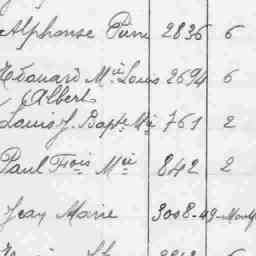 Alphonse Pierre 2836 6
Edouard Mie Louis 2694 6
Albert
Louis J. Bapte Mie 761 2
Paul Frois Mie 842 2
Jean Marie 3008-49-